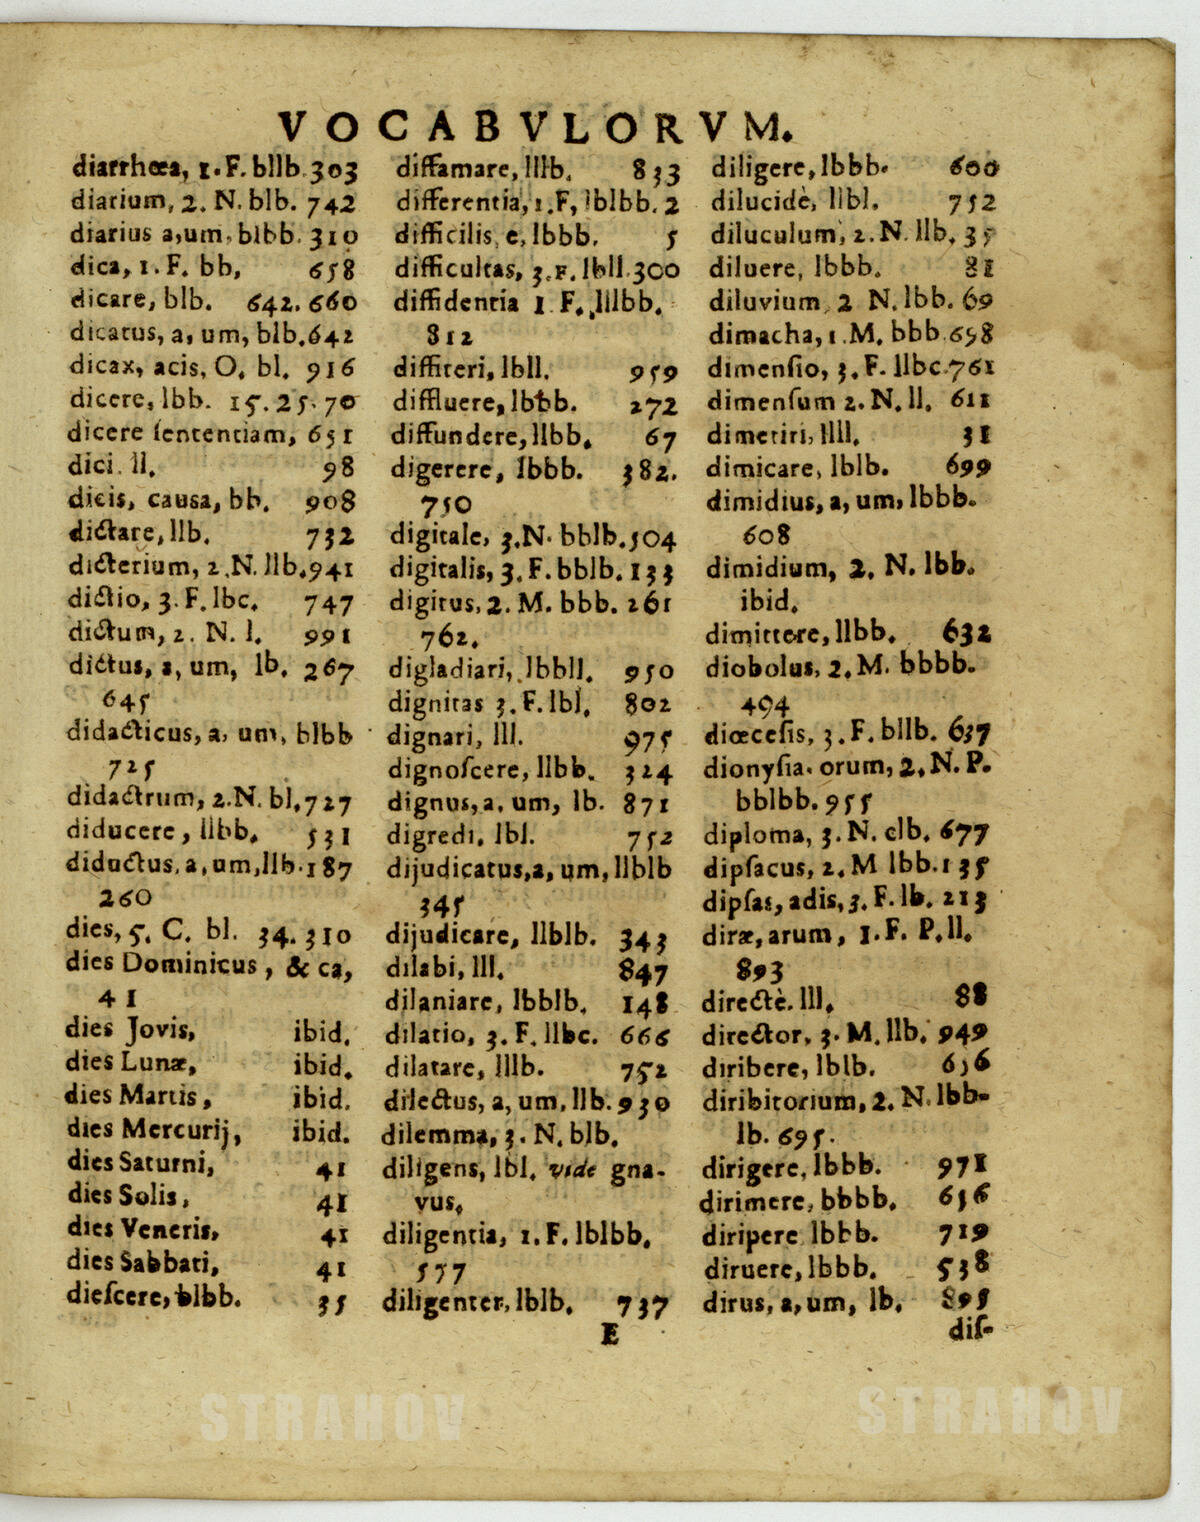 VOCABVLORVM.
diarrhœa, 1. F. bllb. 303
diarium, 2. N. blb. 742
diarius a, um, blbb. 310
dica, 1. F. bb, 658
dicare, blb. 642. 660
dicatus, a, um, blb. 642
dicax, acis, O. bl. 916
dicere, lbb. 15. 25. 70
dicere ſententiam, 651
dici. ll. 98
dicis, causa, bb. 908
dictare, llb. 732
dicterium, 2. N. llb. 941
dictio, 3. F. lbc. 747
dictum, 2. N. l. 991
dictus, a, um, lb. 267
645
didacticus, a, um, blbb
725
didactrum, 2. N. bl, 727
diducere, llbb. 531
diductus, a, um, llb. 187
260
dies, 5. C. bl. 34. 310
dies Dominicus, & ca,
41
dies Jovis, ibid.
dies Lunæ, ibid.
dies Martis, ibid.
dies Mercurij, ibid.
dies Saturni, 41
dies Solis, 41
dies Veneris, 41
dies Sabbati, 41
dieſcere, blbb. 35
diffamare, lllb. 833
differentia, 1. F, lblbb. 2
difficilis, e, lbbb. 5
difficultas, 3. F. lbll. 300
diffidentia 1. F. lllbb.
812
diffiteri, lbll. 959
diffluere, lbbb. 272
diffundere, llbb. 67
digerere, lbbb. 382.
750
digitale, 3. N. bblb. 504
digitalis, 3. F. bblb. 133
digitus, 2. M. bbb. 261
762.
digladiari, lbbll. 950
dignitas 3. F. lbl. 802
dignari, lll. 975
dignoſcere, llbb. 324
dignus, a, um, lb. 871
digredi, lbl. 752
dijudicatus, a, um, llblb
345
dijudicare, llblb. 343
dilabi, lll. 847
dilaniare, lbblb. 148
dilatio, 3. F. llbc. 666
dilatare, lllb. 752
dilectus, a, um, llb. 930
dilemma, 3. N. blb.
diligens, lbl. vide gna-
vus,
diligentia, 1. F. lblbb.
577
diligenter, lblb. 737
diligere, lbbb. 600
dilucidè, llbl. 752
diluculum, 2. N. llb. 35
diluere, lbbb. 81
diluvium 2 N. lbb. 69
dimacha, 1. M. bbb. 698
dimenſio, 3. F. llbc. 761
dimenſum 2. N. ll. 611
dimetiri, llll. 31
dimicare, lblb. 699
dimidius, a, um, lbbb.
608
dimidium, 2. N. lbb.
ibid.
dimittere, llbb. 632
diobolus, 2. M. bbbb.
494
diœceſis, 3. F. bllb. 637
dionyſia. orum, 2. N. P.
bblbb. 955
diploma, 3. N. clb. 677
dipſacus, 2. M lbb. 135
dipſas, adis, 3. F. lb. 213
diræ, arum, 1. F. P. ll.
893
directè. lll. 88
director, 3. M. llb. 949
diribere, lblb. 656
diribitorium, 2. N. lbb-
lb. 695.
dirigere, lbbb. 971
dirimere, bbbb. 656
diripere lbbb. 719
diruere, lbbb. 538
dirus, a, um, lb. 895
E
diſ-
STRAHOV
STRAHOV